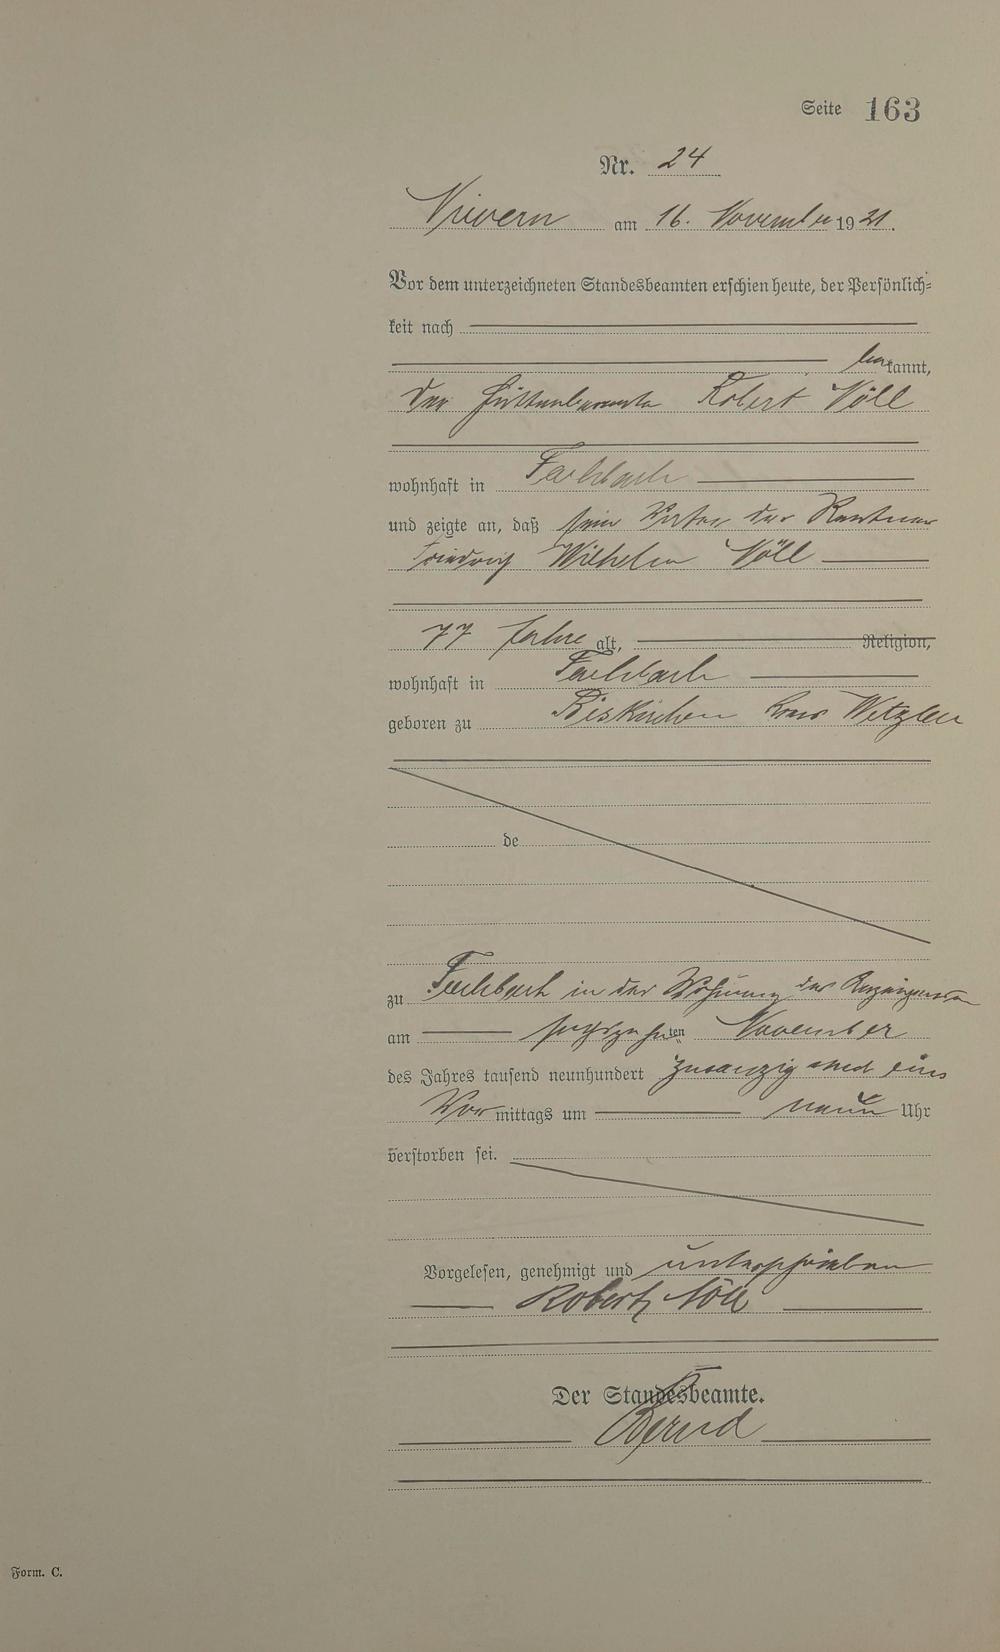 Seite 163
Nr. 24
Nievern am 16. November 1921.
Vor dem unterzeichneten Standesbeamten erschien heute, der Persönlich=
keit nach
bekannt,
der Hüttenbeamte Robert Nöll
wohnhaft in Fachbach
und zeigte an, daß sein Vater der Rentner
Friedrich Wilhelm Nöll
77 Jahre alt, Religion,
wohnhaft in Fachbach
geboren zu Biskirchen Kreis Wetzlar
de
zu Fachbach in der Wohnung des Anzeigenden
am sechszehnten November
des Jahres tausend neunhundert zwanzig und eins
Vormittags um neun Uhr
verstorben sei.
Vorgelesen, genehmigt und unterschrieben
Robert Nöll
Der Standesbeamte.
Form. C.